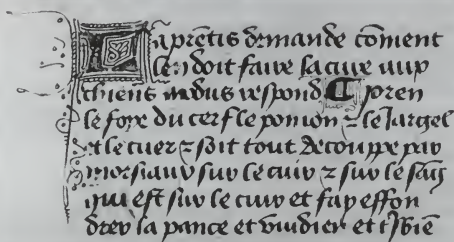 La prentis demande cõment
len doit faire la cuirie aux
chiens modus respond A pren
le foye du cerf le pomon ⁊ le Jargel
et le cuer ⁊ soit tout decouppe par
morsiaux sur le cuir ⁊ sur le sãg
qui est sur le cuir et fay effon
drer la pance et vuidier et t biẽ